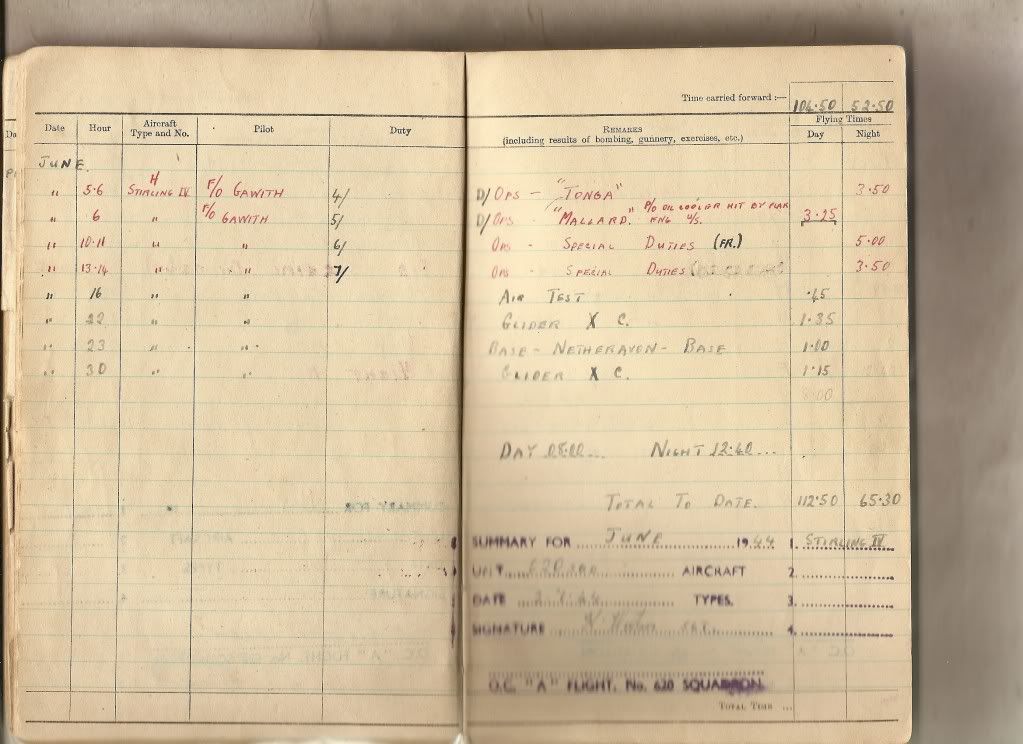 Time carried forward :— 104·50 52·50
Date Hour Aircraft Type and No. Pilot Duty REMARKS (including results of bombing, gunnery, exercises, etc.) Flying Times Day Night
JUNE.
" 5·6 H STIRLING IV F/O GAWITH 4/ D/OPS - "TONGA" 3·50
" 6 " F/O GAWITH 5/ D/OPS - "MALLARD." P/O OIL COOLER HIT BY FLAK ENG U/S. 3·25
" 10·11 " " 6/ OPS - SPECIAL DUTIES (FR.) 5·00
" 13·14 " " 7/ OPS - SPECIAL DUTIES 3·50
" 16 " " AIR TEST ·45
" 22 " " GLIDER X C. 1·35
" 23 " " BASE - NETHERAVEN - BASE 1·00
" 30 " " GLIDER X C. 1·15
8:00
DAY 08:00... NIGHT 12·40...
TOTAL TO DATE. 112·50 65·30
SUMMARY FOR JUNE 1944 1. STIRLING IV
UNIT 620 AIRCRAFT 2.
DATE 2.7.44 TYPES. 3.
SIGNATURE 4.
O.C. "A" FLIGHT. No. 620 SQUADRON.
TOTAL TIME ...